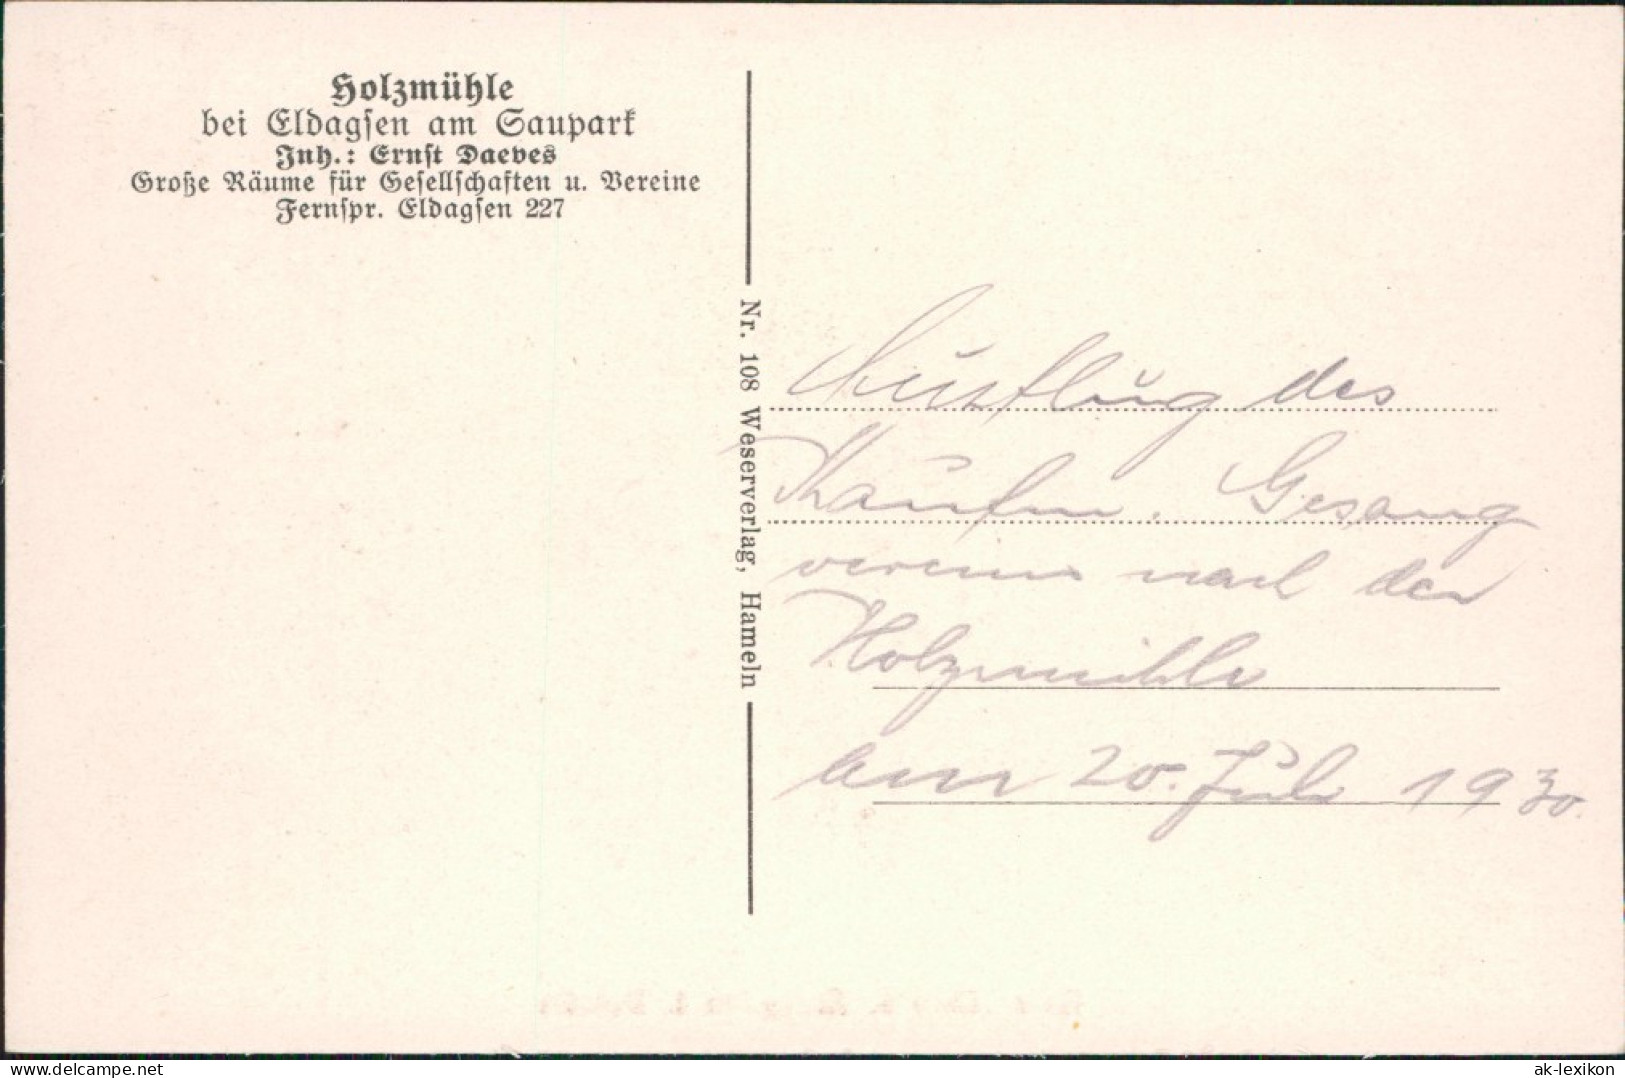 Holzmühle
bei Eldagsen am Saupark
Inh.: Ernst Daeves
Große Räume für Gesellschaften u. Vereine
Fernspr. Eldagsen 227
Nr. 108 Weserverlag, Hameln
Ausflug des
Kaufm. Gesang
vereins nach der
Holzmühle
am 20. Juli 1930.
delcampe.net
ak-lexikon